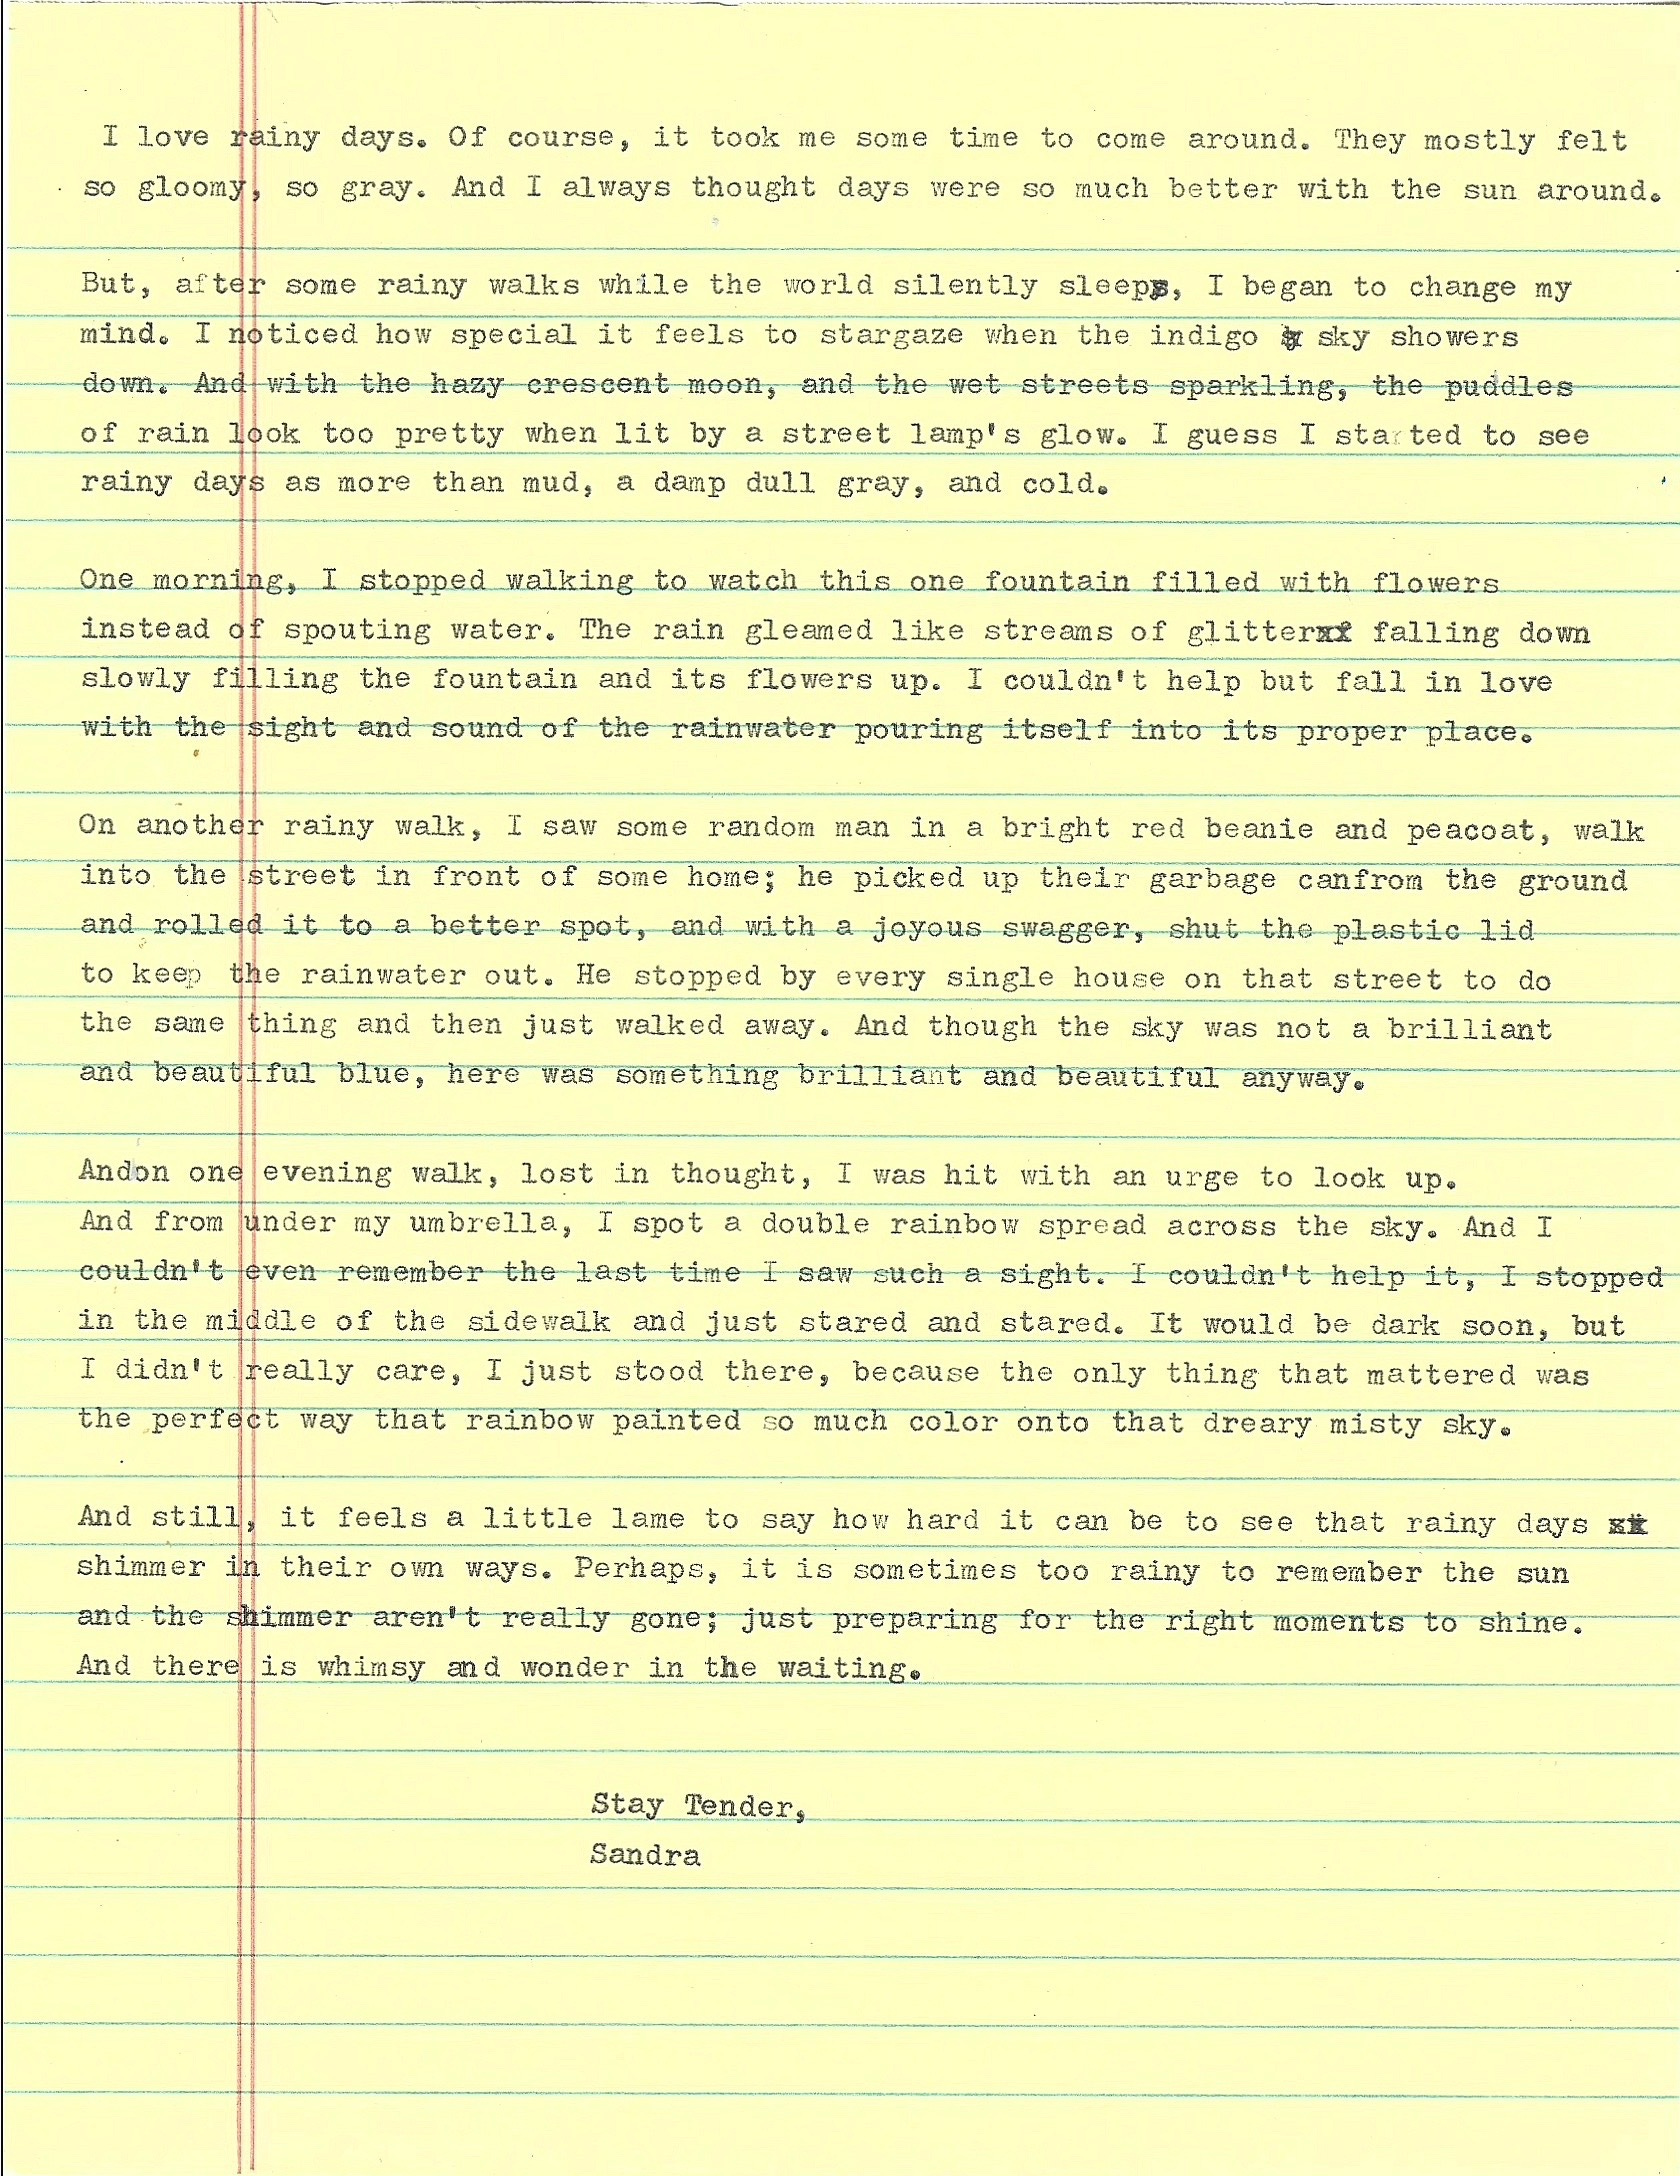 I love rainy days. Of course, it took me some time to come around. They mostly felt
so gloomy, so gray. And I always thought days were so much better with the sun around.
But, after some rainy walks while the world silently sleeps, I began to change my
mind. I noticed how special it feels to stargaze when the indigo sky showers
down. And with the hazy crescent moon, and the wet streets sparkling, the puddles
of rain look too pretty when lit by a street lamp's glow. I guess I started to see
rainy days as more than mud, a damp dull gray, and cold.
One morning, I stopped walking to watch this one fountain filled with flowers
instead of spouting water. The rain gleamed like streams of glitter falling down
slowly filling the fountain and its flowers up. I couldn't help but fall in love
with the sight and sound of the rainwater pouring itself into its proper place.
On another rainy walk, I saw some random man in a bright red beanie and peacoat, walk
into the street in front of some home; he picked up their garbage canfrom the ground
and rolled it to a better spot, and with a joyous swagger, shut the plastic lid
to keep the rainwater out. He stopped by every single house on that street to do
the same thing and then just walked away. And though the sky was not a brilliant
and beautiful blue, here was something brilliant and beautiful anyway.
Andon one evening walk, lost in thought, I was hit with an urge to look up.
And from under my umbrella, I spot a double rainbow spread across the sky. And I
couldn't even remember the last time I saw such a sight. I couldn't help it, I stopped
in the middle of the sidewalk and just stared and stared. It would be dark soon, but
I didn't really care, I just stood there, because the only thing that mattered was
the perfect way that rainbow painted so much color onto that dreary misty sky.
And still, it feels a little lame to say how hard it can be to see that rainy days
shimmer in their own ways. Perhaps, it is sometimes too rainy to remember the sun
and the shimmer aren't really gone; just preparing for the right moments to shine.
And there is whimsy and wonder in the waiting.
Stay Tender,
Sandra